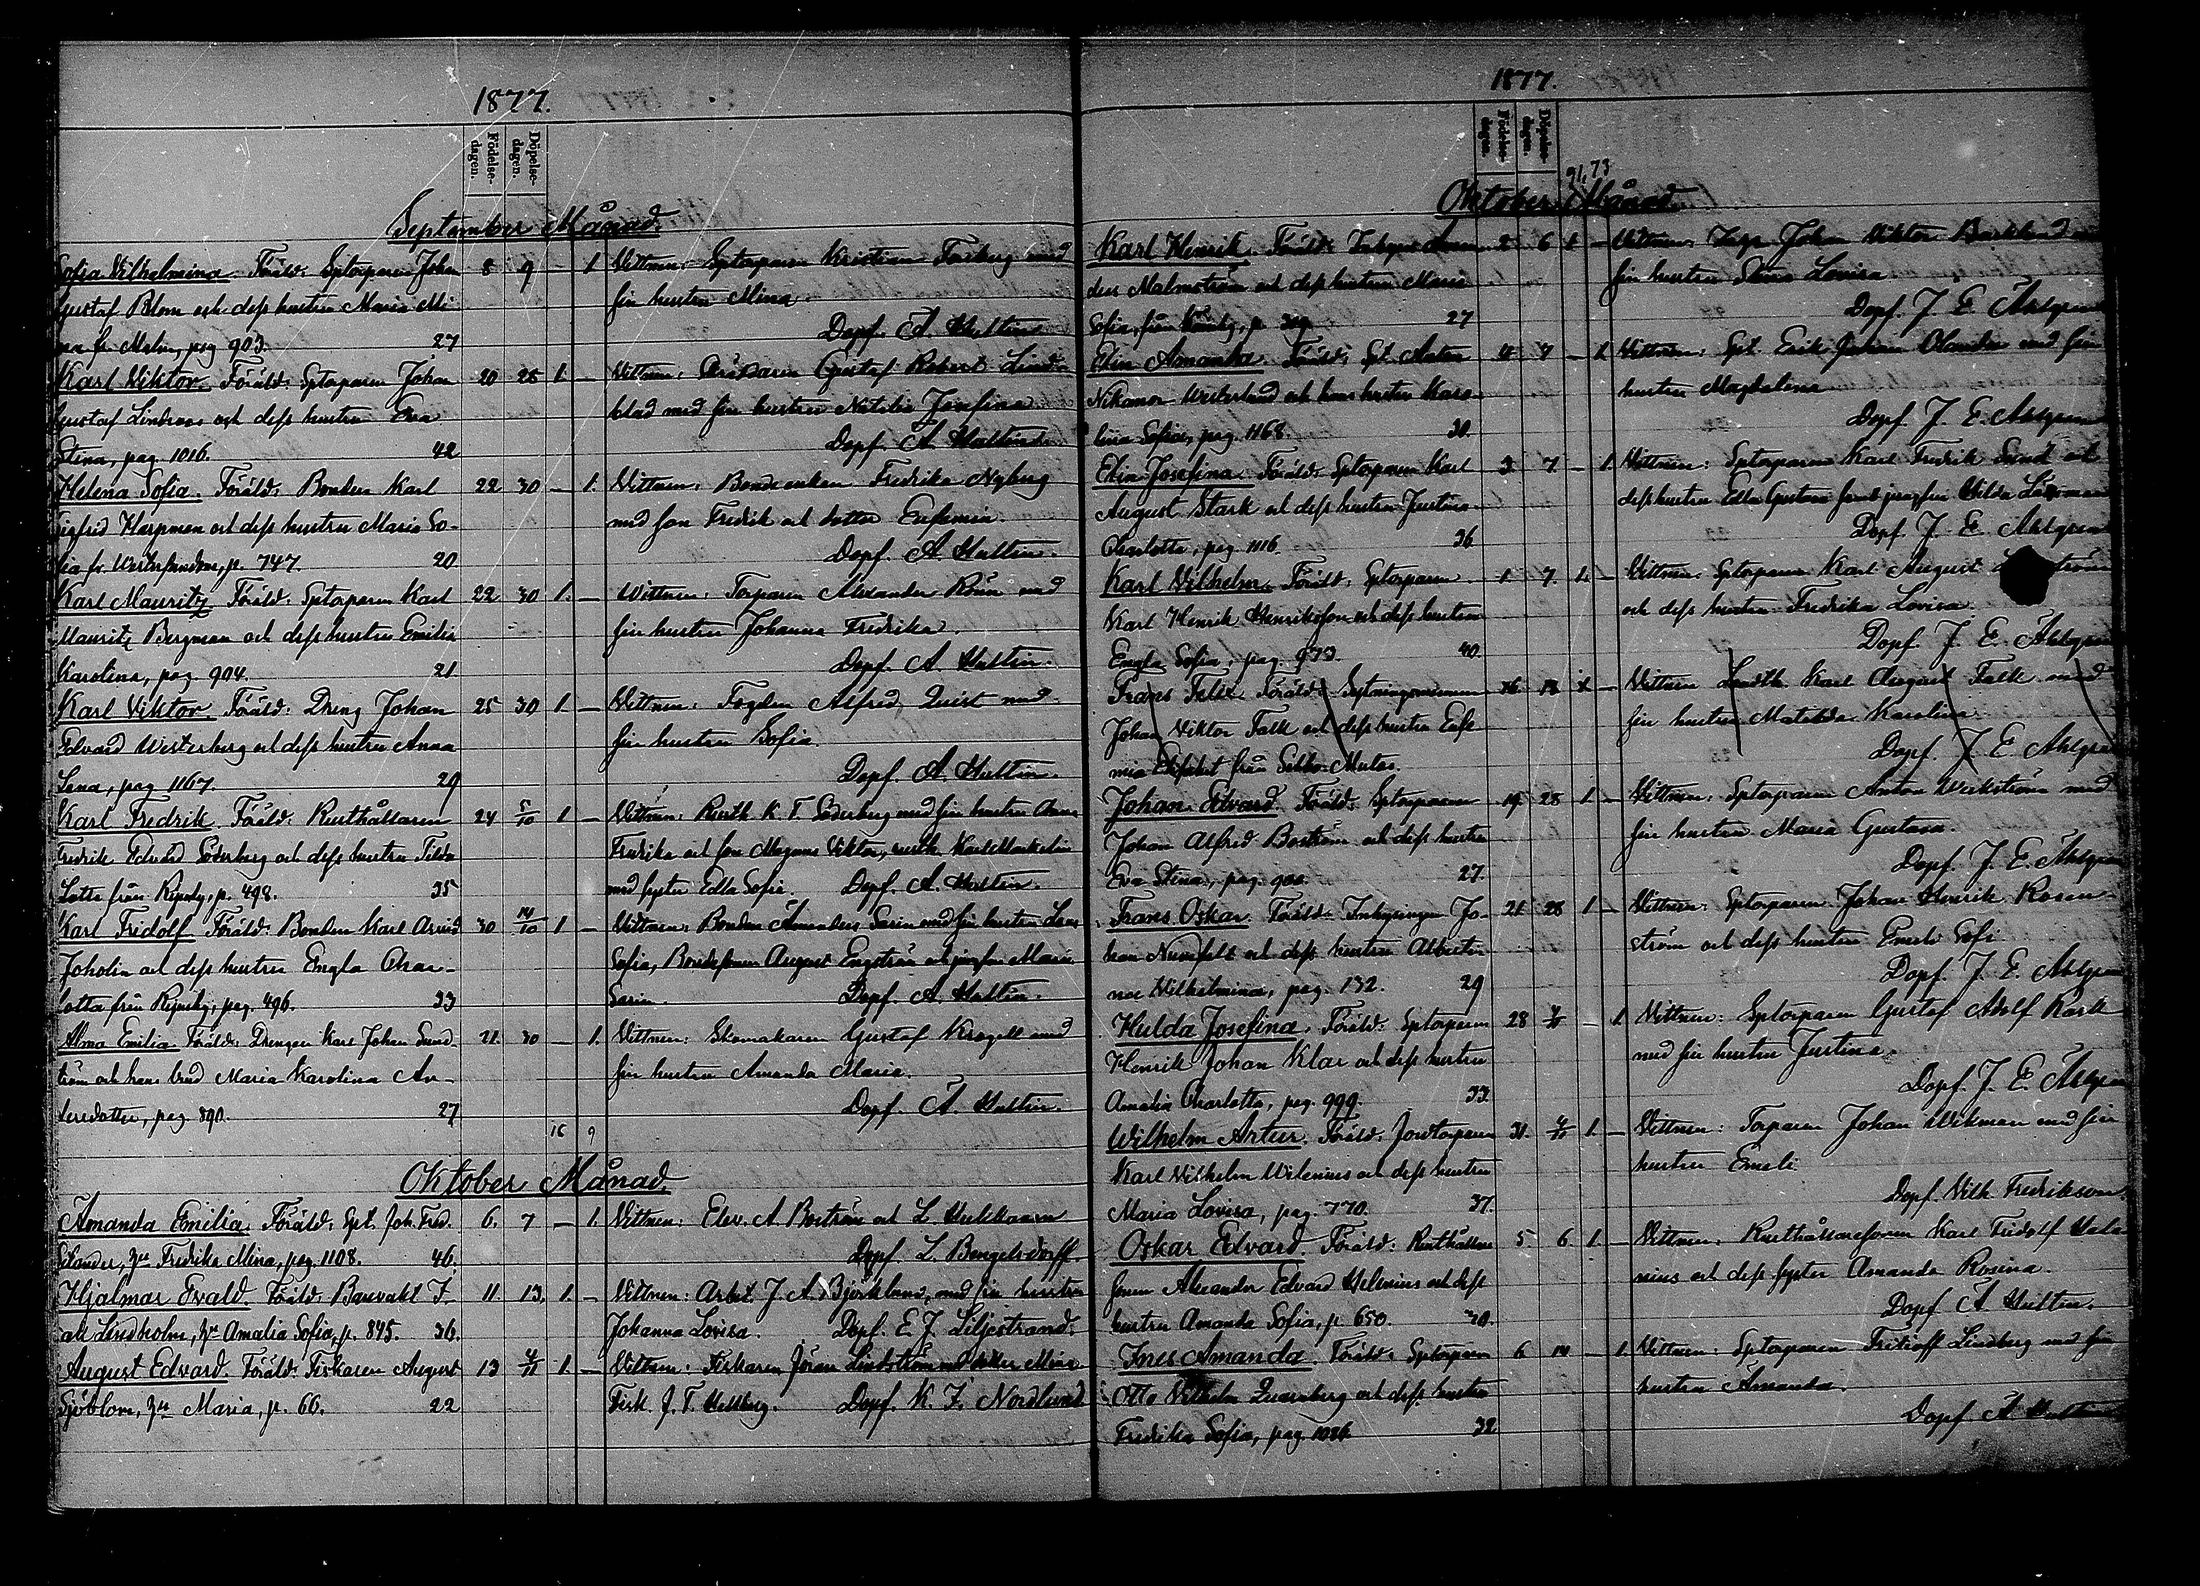 1877.
Födelse-
dagen.
Döpelse-
dagen.
September Månad.
Sofia Vilhelmina. Föräld: Sptorparen Johan 8 9 – 1. Vittnen: Sptorparen Kristian Forsberg med
Gustaf Blom och dess hustru Maria Mi sin hustru Mina.
na fr. Malm, pag 903. 27 Dopf. A. Hultin
Karl Viktor. Föräld: Sptorparen Johan 20 25 1. – Vittnen: Gustaf Robert Lind-
Gustaf Lindroos och dess hustru Eva blad med sin hustru Natalia Josefina
Stina, pag. 1016. 42 Dopf. A. Hultin
Helena Sofia. Föräld: Bonden Karl 22 30 – 1. Vittnen: Bondeenkan Fredrika Nyberg
Sigfrid och dess hustru Maria So- med son Fredrik och dotter Eufemia.
fia fr. p. 747. 20 Dopf. A. Hultin.
Karl Mauritz. Föräld: Sptorparen Karl 22 30 1. – Vittnen: Torparen Alexander Rönn med
Mauritz Bergman och dess hustru Emilia sin hustru Johanna Fredrika.
Karolina, pag. 904. 21 Dopf. A. Hultin.
Karl Viktor. Föräld: Dreng Johan 25 30 1. – Vittnen: Fogden Alfred Quist med
Edvard Westerberg och dess hustru Anna sin hustru Sofia.
Lena, pag 1167. 29 Dopf. A. Hultin.
Karl Fredrik. Föräld: Rusthållaren 24 5/10 1. – Vittnen: Rusth. K. F. Söderberg med sin hustru Anna
Fredrik Edvard Söderberg och dess hustru Tilda Fredrika och son Magnus Viktor, rusth.
Lotta från p. 498. 35 med syster Edla Sofia. Dopf. A. Hultin.
Karl Fridolf. Föräld: Bonden Karl Arvid 30 14/10 1 – Vittnen: Bonden Amandus Sarin med sin hustru Lena
Joholin och dess hustru Engla Char- Sofia, Bondesonen August Engström och jungfru Maria
lotta från pag. 496. 33 Sarin. Dopf. A. Hultin.
Alma Emilia. Föräld: Drengen Karl Johan Sund- 21 30 – 1. Vittnen: Skomakaren Gustaf Krogell med
ström och hans brud Maria Karolina An- sin hustru Amanda Maria.
dersdotter, pag. 890. 27 Dopf. A. Hultin.
16 9
Oktober Månad.
Amanda Emilia. Föräld: Spt. Joh. Fred. 6. 7 – 1. Vittnen: Elev. A. Boström och L.
Fredrika Mina, pag. 1108. 40. Dopf. L. Bengelsdorff.
Hjalmar Evald. Föräld: Banvakt F. 11 13. 1. – Vittnen: Arbet. J. A. Björklund, med sin hustru
Lindholm, Amalia Sofia, p. 845. 36. Johanna Lovisa. Dopf. E. J. Liljestrand.
August Edvard. Föräld: Fiskaren August 13 1. – Vittnen: Fiskaren Lindström med dotter Mina
Sjöblom, Maria, p. 66. 22 Fisk. J. F. Hellberg. Dopf. K. F. Nordlund.
1877.
Födelse-
dagen.
Döpelse-
dagen.
91. 73
Oktober Månad.
Karl Henrik. Föräld: 2 6 1 – Vittnen: Johan Viktor
deus Malmström och dess hustru Maria sin hustru Stina Lovisa
Sofia, från p. 27 Dopf. J. E. Ahlgren
Elin Amanda. Föräld: Spt. Anton 4 7 – 1. Vittnen: Spt. Erik Johan med sin
Nikanor Westerlund och hans hustru Karo- hustru Magdalena
lina Sofia, pag. 1168. 30. Dopf. J. E. Ahlgren
Elin Josefina. Föräld: Sptorparen Karl 3 7 – 1. Vittnen: Sptorparen Karl Fredrik Sund och
August Stark och dess hustru Justina dess hustru Edla Gustava samt jungfru Hilda
Charlotta, pag. 1116. 36 Dopf. J. E. Ahlgren
Karl Vilhelm. Föräld: Sptorparen 1 7. 1. – Vittnen: Sptorparen Karl August
Karl Henrik Henriksson och dess hustru och dess hustru Fredrika Lovisa.
Engla Sofia, pag. 973. 40. Dopf. J. E. Ahlgren
Frans Felix. Föräld: – Vittnen Karl August Falk med
Johan Viktor Falk och dess hustru Eufe sin hustru Matilda Karolina.
mia från Dopf. J. E. Ahlgren
Johan Edvard. Föräld: Sptorparen 19 28 1. – Vittnen: Sptorparen Anton Weckström med
Johan Alfred Boström och dess hustru sin hustru Maria Gustava.
Eva Stina, pag. 27. Dopf. J. E. Ahlgren
Frans Oskar. Föräld: Inhysingen Jo- 21 28 1 – Vittnen: Sptorparen Johan Henrik Rosen-
han och dess hustru Alberti- ström och dess hustru Emeli Sofi
na Vilhelmina, pag. 132. 29 Dopf. J. E. Ahlgren
Hulda Josefina. Föräld: Sptorparen 28 – 1. Vittnen: Sptorparen Gustaf Adolf Rask
Henrik Johan Klar och dess hustru med sin hustru Justina.
Amalia Charlotta, pag. 999. 33 Dopf. J. E. Ahlgren
Wilhelm Artur. Föräld: Jordtorparen 31. 1. – Vittnen: Torparen Johan Wikman med sin
Karl Vilhelm Wilenius och dess hustru hustru Emeli
Maria Lovisa, pag. 770. 37. Dopf. Vilh. Fredrikson
Oskar Edvard. Föräld: Rusthållare 5 6 1. – Vittnen: Rusthållaresonen Karl Fridolf
sonen Alexander Edvard Helenius och dess nius och dess syster Amanda Rosina.
hustru Amanda Sofia, p. 650. 20. Dopf. A. Hultin.
Ines Amanda. Föräld: Sptorparen 6 14 – 1. Vittnen: Sptorparen Lindberg med sin
Otto Vilhelm Quarnberg och dess hustru hustru Amanda.
Fredrika Sofia, pag. 32 Dopf. A. Hultin